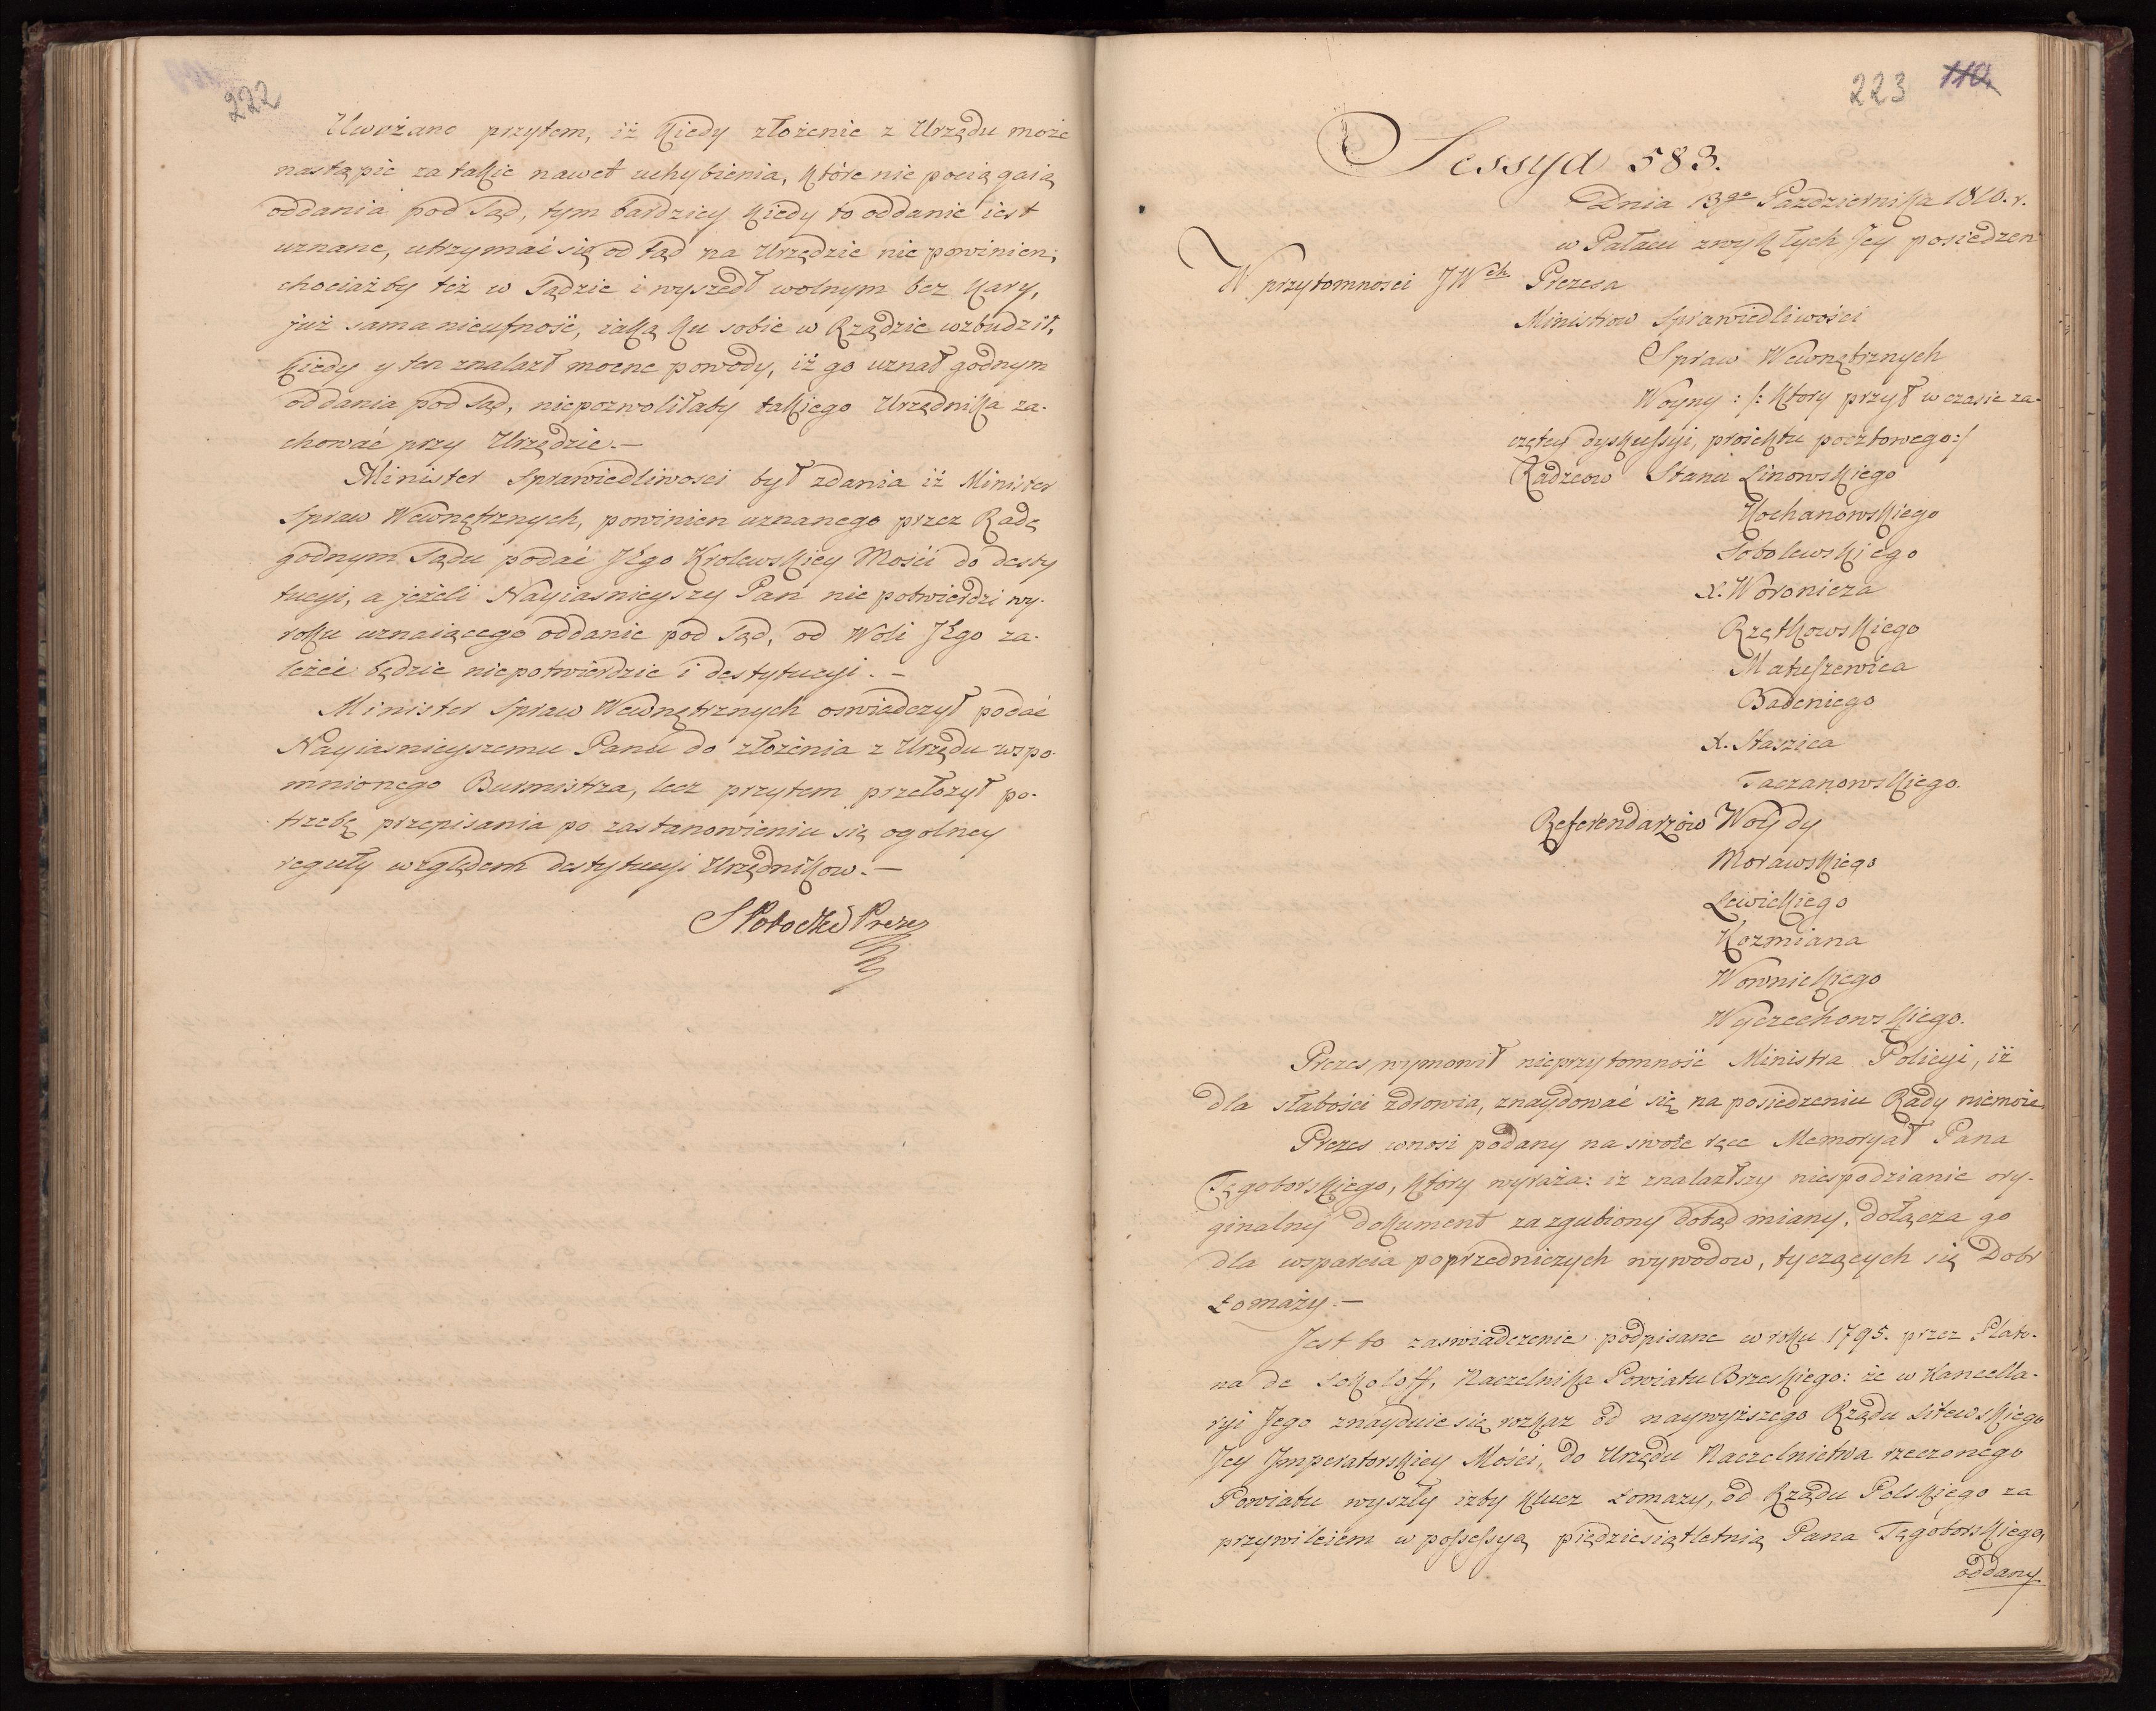 222
Uważano przytem, iż kiedy złożenie z Urzędu może
nastąpić za takie nawet uchybienia, które nie pociągaią
oddania pod Sąd, tym bardziey kiedy to oddanie iest
uznane, utrzymać się od tąd na Urzędzie nie powinien,
chociażby też w Sądzie i wyszedł wolnym bez kary,
już sama nieufność, iaką ku sobie w Rządzie wzbudził,
kiedy y ten znalazł mocne powody, iż go uznał godnym
oddania pod Sąd, niepozwoliłaby takiego Urzędnika za-
chować przy Urzędzie.—
Minister Sprawiedliwosci był zdania iż Minister
Spraw Wewnętrznych, powinien uznanego przez Radę
godnym Sądu podać JEgo Krolewskiey Mości do desty
tucyi, a jeżeli Nayiasnieyszy Pan nie potwierdzi wy-
roku uznaiącego oddanie pod Sąd, od Woli JEgo za-
leżeć będzie niepotwierdzić i destytucyi.—
Minister Spraw Wewnętrznych oswiadczył podać
Nayiasnieyszemu Panu do złożenia z Urzędu wspo-
mnionego Burmistrza, lecz przytem przełożył po-
trzebę przepisania po zastanowieniu się ogolney
reguły względem destytucyi Urzędnikow.—
S Potocki Prezes
223 110.
Sessya 583.
Dnia 13go Pazdziernika 1810. r.
w Pałacu zwykłych Jey posiedzen
W przytomnosci JWch Prezesa
Ministrow Sprawiedliwości
Spraw Wewnętrznych
Woyny :/: ktory przył w czasie za-
czętey dyskussyi, proiektu pocztowego:/
Radzcow Stanu Linowskiego
Kochanowskiego
Sobolewskiego
X. Woronicza
Rzętkowskiego
Matuszewica
Badeniego
X. Staszica
Taczanowskiego.
Referendarzów Woydy
Morawskiego
Lewickiego
Kozmiana
Wownickiego
Wyczechowskiego.
Prezes wymowił nieprzytomność Ministra Policyi, iż
dla słabości zdrowia, znaydować się na posiedzeniu Rady niemoże
Prezes wnosi podany na swoie ręce Memoryał Pana
Tęgoborskiego, który wyraża: iż znalazłszy niespodzianie ory-
ginalny dokument za zgubiony dotąd miany, dołącza go
dla wsparcia poprzedniczych wywodow, tyczących się Dobr
Łomazy.—
Jest to zaswiadczenie podpisane w roku 1795. przez Plato-
na de Sokoloff, Naczelnika Powiatu Brzeskiego: że w Kancella-
ryi Jego znayduie się rozkaz od naywyższego Rządu Litewskiego
Jey Imperatorskiey Mości, do Urzędu Naczelnictwa rzeczonego
Powiatu wyszły izby klucz Łomazy, od Rządu Polskiego za
przywileiem w possessyą piędziesiątletnią Pana Tęgoborskiego,
oddany.